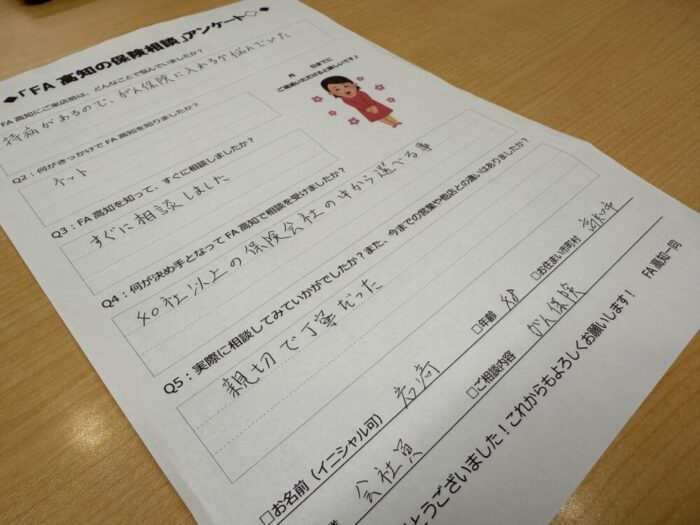 ◆「FA 高知の保険相談」アンケート◇◆
FA 高知にご来店前は、どんなことで悩んでいましたか？
持病があるので、がん保険に入れるか悩んでいた
月 日までに
ご提出いただけると嬉しいです♪
Q2：何がきっかけで FA 高知を知りましたか？
ネット
Q3：FA 高知を知って、すぐに相談しましたか？
すぐに相談しました
Q4：何が決め手となって FA 高知で相談を受けましたか？
40社以上の保険会社の中から選べる事
Q5：実際に相談してみていかがでしたか？また、今までの営業や他店との違いはありましたか？
親切で丁寧だった
□お名前（イニシャル可） 岩崎 □年齢 48 □お住まい市町村 高知市
会社員 □ご相談内容 がん保険
とうございました！これからもよろしくお願いします！
FA 高知一同